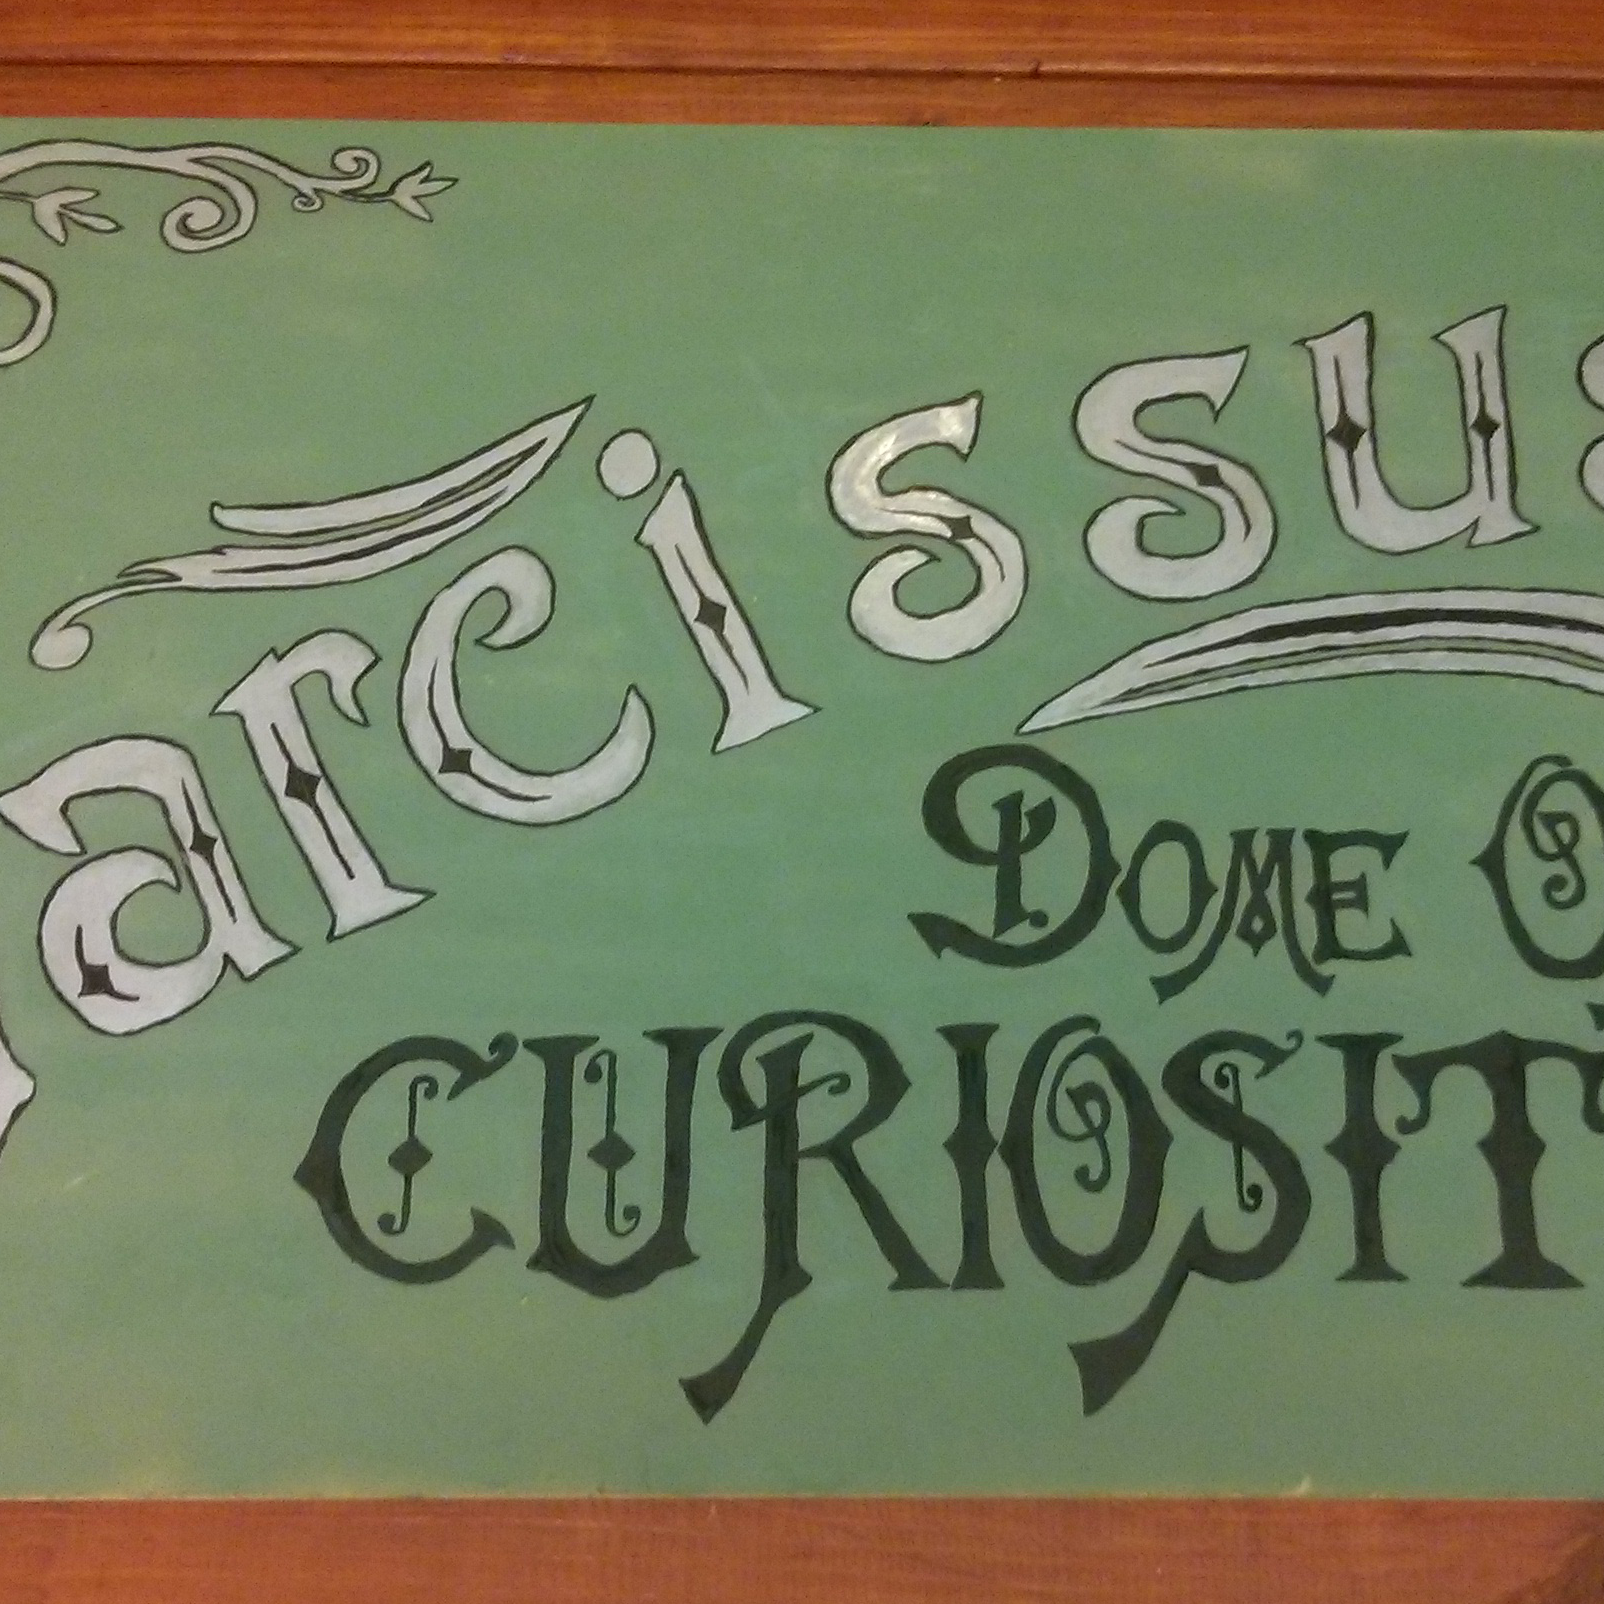 arcissus
DOME O
CURIOSIT